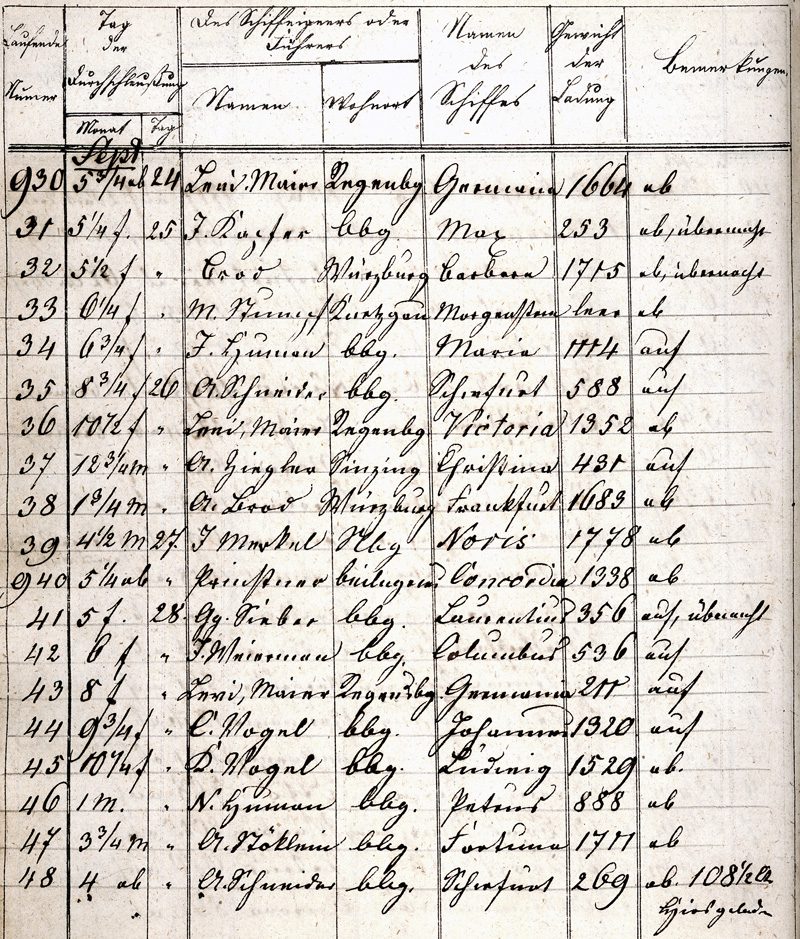 Laufende Numer | Tag der Durchschleußung | Des Schiffeigners oder Führers | Namen des Schiffes | Gewicht der Ladung | Bemerkungen
Monat | Tag | Namen | Wohnort
Sept
930 | 5 3/4 ab | 24 | Levi. Maier | Regenbg | Germania | 1664 | ab
31 | 5 1/4 f. | 25 | J. Kapfer | bbg. | Max | 253 | ab, übernacht
32 | 5 1/2 f | " | Brod | Würzburg | Barbara | 1715 | ab, übernacht
33 | 6 1/4 f | " | M. Stumpf | Knetzgau | Morgenstern | leer | ab
34 | 6 3/4 f | " | J. Human | bbg. | Maria | 1114 | auf
35 | 8 3/4 f | 26 | A. Schneider | bbg. | 588 | auf
36 | 10 1/2 f | " | Levi, Maier | Regenbg. | Victoria | 1352 | ab
37 | 12 3/4 m | " | A. Ziegler | Sinzing | Christina | 431 | auf
38 | 1 3/4 m | " | A. Brod | Würzburg | Frankfurt | 1683 | ab
39 | 4 1/2 m | 27 | J Merkel | Nbg | Noris | 1778 | ab
940 | 5 1/4 ab | " | Concordia | 1338 | ab
41 | 5 f. | 28 | Gg. Sieber | bbg. | Laurentius | 356 | auf, übernacht
42 | 6 f | " | J. Weierman | bbg. | Columbus | 536 | auf
43 | 8 f | " | Levi, Maier | Regensbg | Germania | 211 | auf
44 | 9 3/4 f | " | C. Vogel | bbg. | Johannes | 1320 | auf
45 | 10 1/4 f | " | K. Vogel | bbg. | Ludwig | 1529 | ab.
46 | 1 m. | " | N. Human | bbg. | Petrus | 888 | ab
47 | 3 3/4 m | " | A. Stöklein | bbg. | Fortuna | 1711 | ab
48 | 4 ab | " | A. Schneider | bbg. | 269 | ab. 108 1/2
geladen